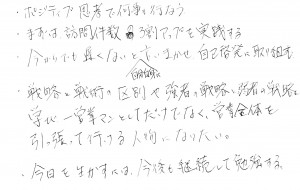 ・ポジティブ思考で何事も行なう
・まずは訪問件数3割アップを実践する
・今からでも遅くないと言いきかせ自己啓発に取り組む
・戦略と戦術の区別や強者の戦略、弱者の戦略と
学び一営業マンとしてだけでなく、営業全体を
引っ張って行ける人間になりたい。
・今日を生かすには、今後も継続して勉強する